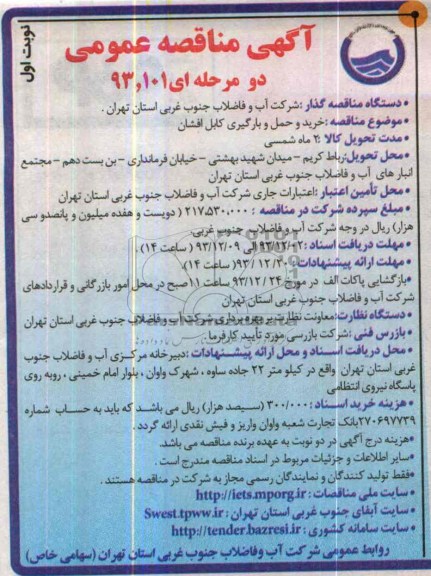 نوبت اول
آگهی مناقصه عمومی
دو مرحله ای ۹۳٫۱۰۱
• دستگاه مناقصه گذار: شرکت آب و فاضلاب جنوب غربی استان تهران.
• موضوع مناقصه: خرید و حمل و بارگیری کابل افشان
• مدت تحویل کالا: ۲ ماه شمسی
• محل تحویل: رباط کریم - میدان شهید بهشتی - خیابان فرمانداری - بن بست دهم - مجتمع
انبار های آب و فاضلاب جنوب غربی استان تهران
• محل تأمین اعتبار: اعتبارات جاری شرکت آب و فاضلاب جنوب غربی استان تهران
• مبلغ سپرده شرکت در مناقصه: ۲۱۷٫۵۳۰٫۰۰۰ (دویست و هفده میلیون و پانصدو سی
هزار) ریال در وجه شرکت آب و فاضلاب جنوب غربی.
• مهلت دریافت اسناد: ۹۳/۱۲/۰۲ الی ۹۳/۱۲/۰۹ (ساعت ۱۴).
• مهلت ارائه پیشنهادات: ۹۳/ ۱۲/ (ساعت ۱۴).
•بازگشایی پاکات الف در مورخ ۹۳/۱۲/۲۴ ساعت ۱۱ صبح در محل امور بازرگانی و قراردادهای
شرکت آب و فاضلاب جنوب غربی استان تهران
• دستگاه نظارت: معاونت نظارت بر بهره برداری شرکت آب و فاضلاب جنوب غربی استان تهران
• بازرس فنی: شرکت بازرسی مورد تأیید کارفرما
• محل دریافت اسناد و محل ارائه پیشنهادات: دبیرخانه مرکزی آب و فاضلاب جنوب
غربی استان تهران واقع در کیلو متر ۲۲ جاده ساوه، شهرک واوان، بلوار امام خمینی، روبه روی
پاسگاه نیروی انتظامی
• هزینه خرید اسناد: ۳۰۰/۰۰۰ (سیصد هزار) ریال می باشد که باید به حساب شماره
۲۷۰۶۹۷۷۳۹ بانک تجارت شعبه واوان واریز و فیش نقدی ارائه گردد.
•هزینه درج آگهی در دو نوبت به عهده برنده مناقصه می باشد.
•سایر اطلاعات و جزئیات مربوط در اسناد مناقصه مندرج است.
•فقط تولید کنندگان و نمایندگان رسمی مجاز به شرکت در مناقصه هستند.
• سایت ملی مناقصات: http://iets.mporg.ir
• سایت آبفای جنوب غربی استان تهران: Swest.tpww.ir
• سایت سامانه کشوری: http://tender.bazresi.ir
روابط عمومی شرکت آب وفاضلاب جنوب غربی استان تهران (سهامی خاص)